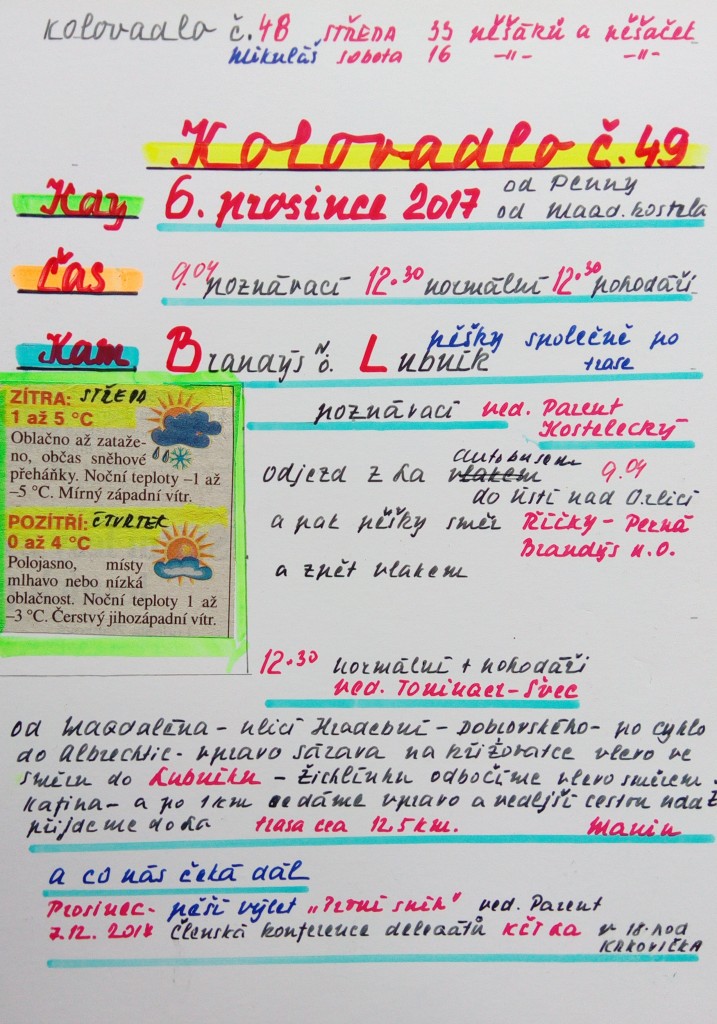 Kolovadlo č.48 STŘEDA 33 pěšáků a pěšaček
Mikuláš sobota 16 -"- -"-
Kolovadlo č.49
Kdy 6. prosince 2017 od Penny
od Magd. kostela
Čas 9.04 poznávací 12.30 normální 12.30 pohodáři
Kam Brandýs n. o. Lubník pěšky společně po
trase
ZÍTRA: STŘEDA
1 až 5 °C
Oblačno až zataže-
no, občas sněhové
přeháňky. Noční teploty –1 až
–5 °C. Mírný západní vítr.
POZÍTŘÍ: ČTVRTEK
0 až 4 °C
Polojasno, místy
mlhavo nebo nízká
oblačnost. Noční teploty 1 až
–3 °C. Čerstvý jihozápadní vítr.
poznávací ved. Parent
Kostelecký
odjezd z La vlakem autobusem 9.04
do Ústí nad Orlicí
a pak pěšky směr Říčky - Perná
Brandýs n.O.
a zpět vlakem
12.30 normální + pohodáři
ved. Tominger-Švec
od Magdaléna - ulicí Hradební - Dobrovského - po cyklo
do Albrechtic - vpravo Sázava na křižovatce vlevo ve
směru do Lubníku - Žichlínku odbočíme vlevo směrem
Kafina - a po 1km se dáme vpravo a vedlejší cestou
přijdeme do La trasa cca 12.5km. Manin
a co nás čeká dál
Prosinec - pěší výlet „První sníh" ved. Parent
7.12. 2017 členská konference delegátů KČT La v 18.hod
KRKOVIČKA